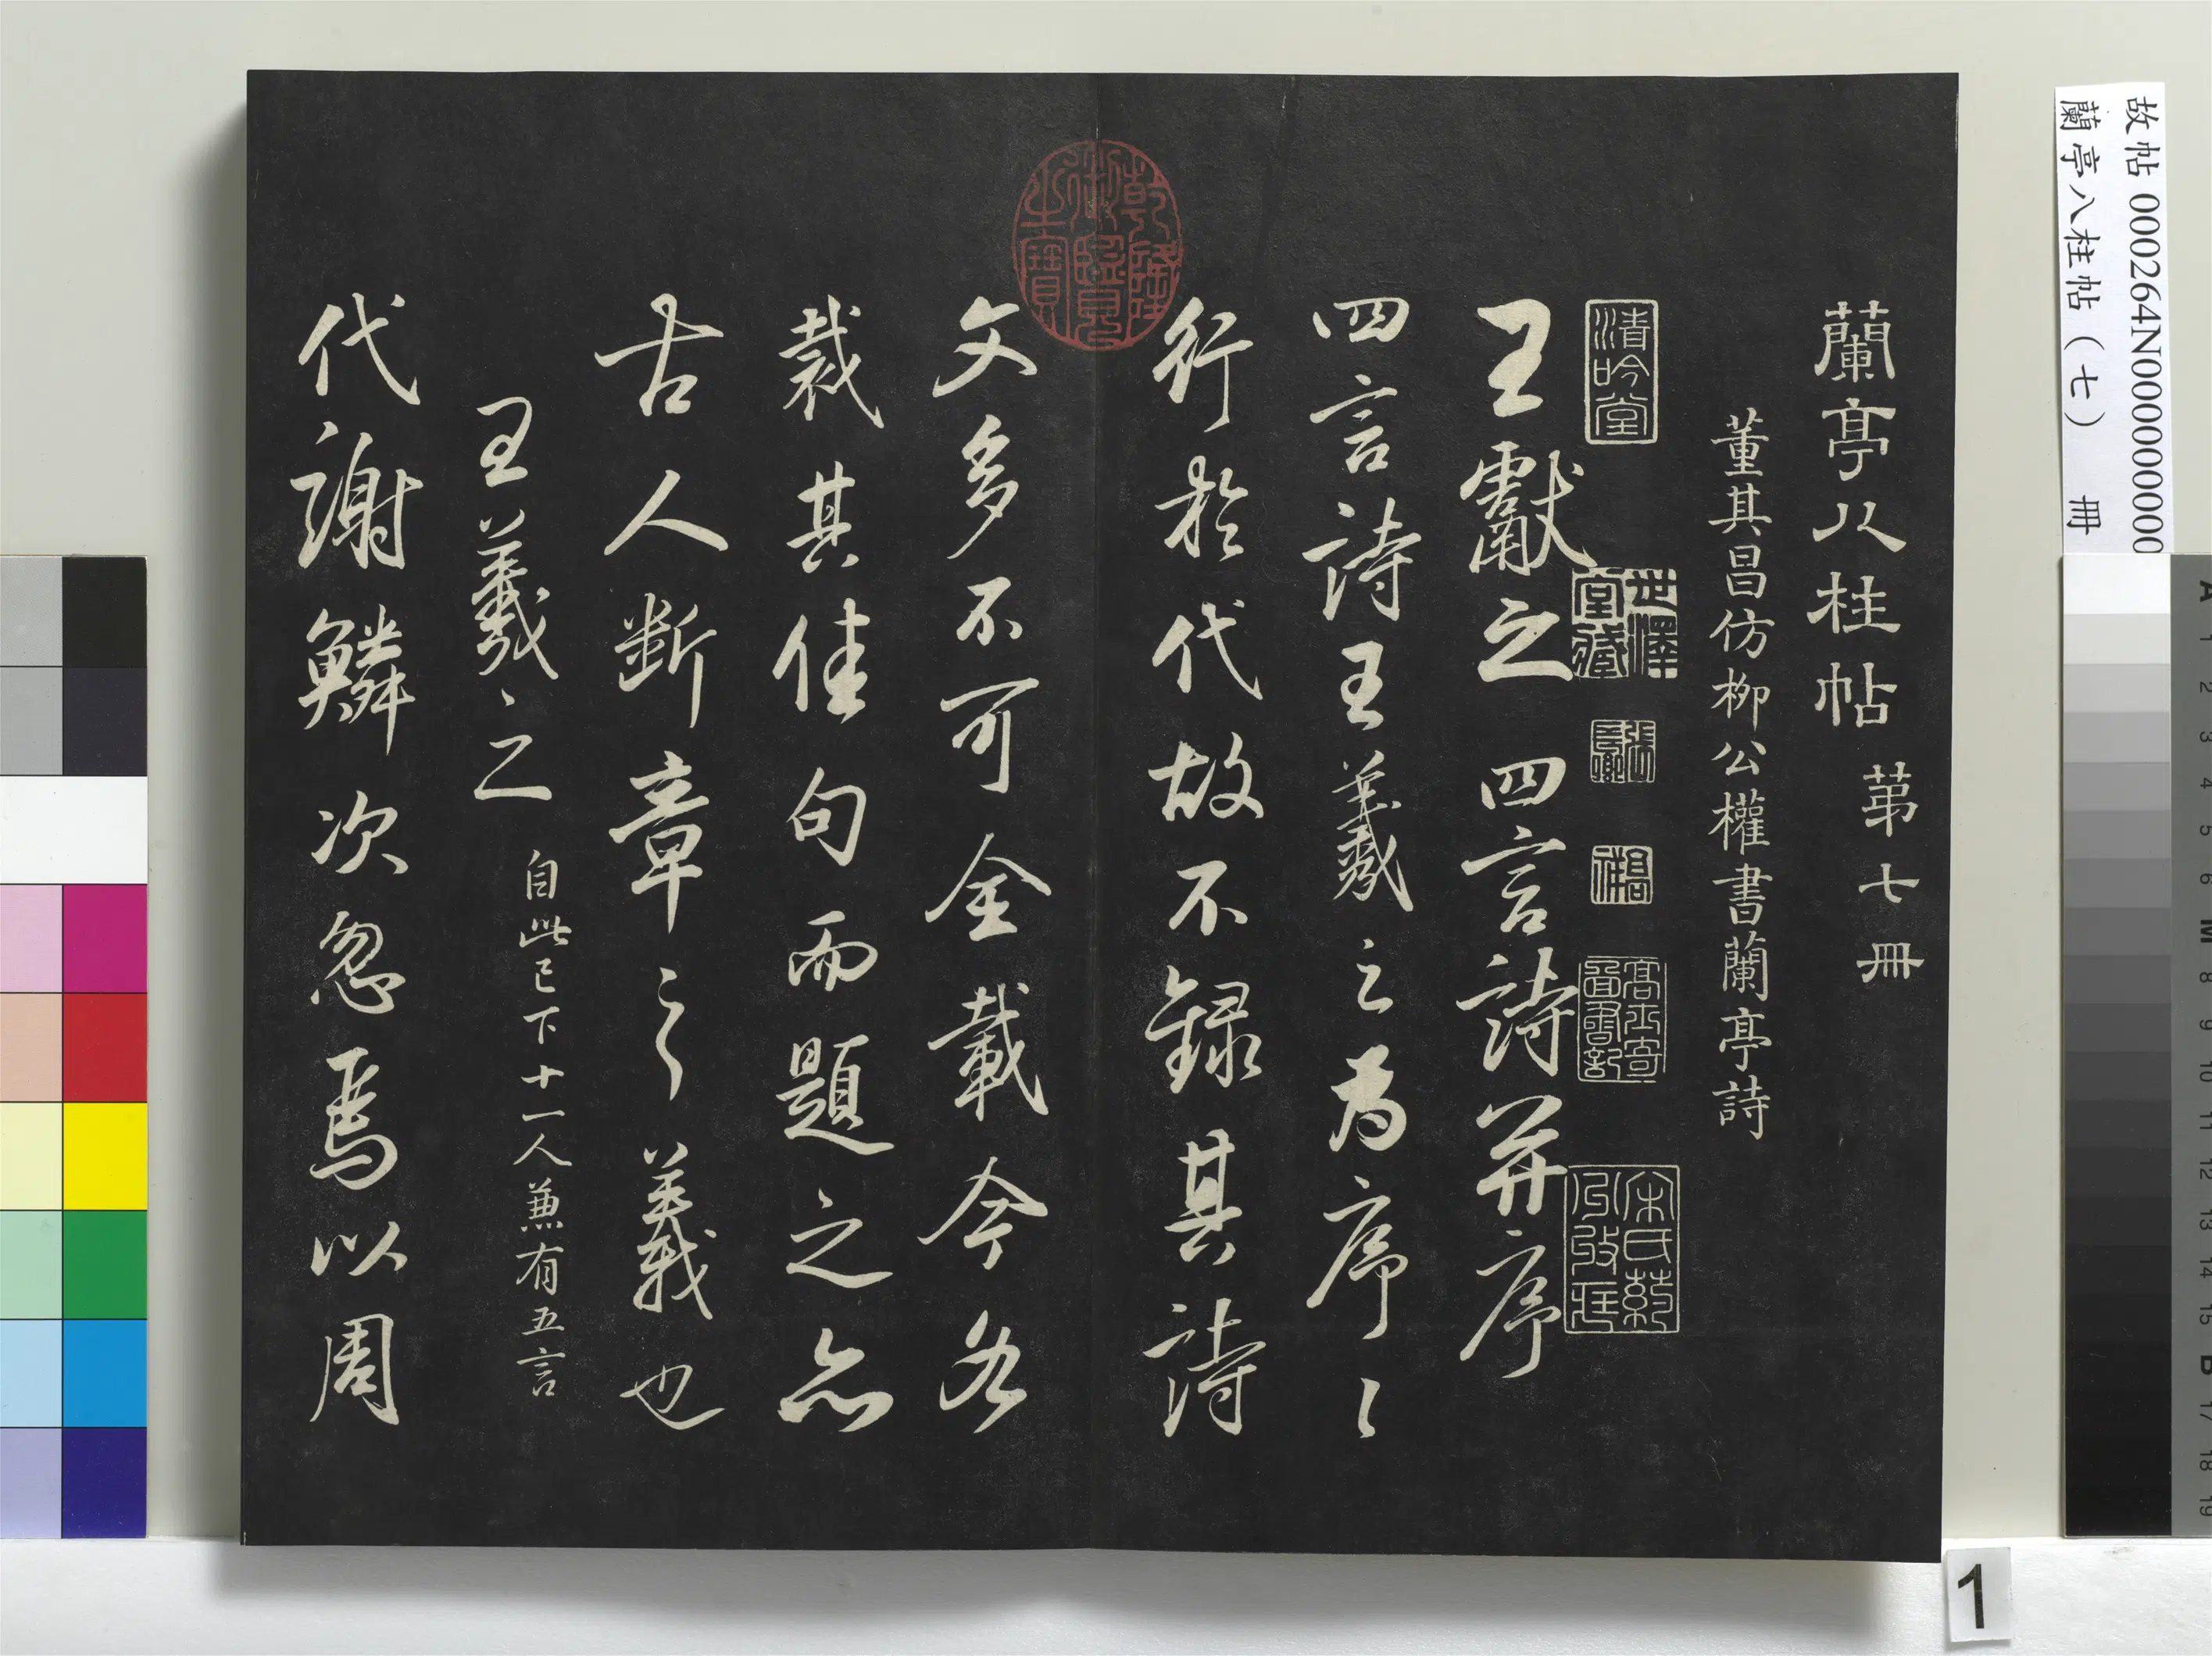 故帖 000264N000000000
蘭亭八柱帖（七） 冊
蘭亭八柱帖 苐七冊
董其昌仿柳公權書蘭亭詩
清吟堂
世澤堂藏
高士奇圖書記
王獻之四言詩并序
四言詩王羲之為序序
行於代故不録其詩
乾隆御覽之寶
文多不可全載今各
裁其佳句而題之亦
古人断章之義也
王羲之 自此已下十一人兼有五言
代謝鱗次忽焉以周
1
A 1 2 3 4 5 6 M 8 9 10 11 12 13 14 15 B 17 18 19